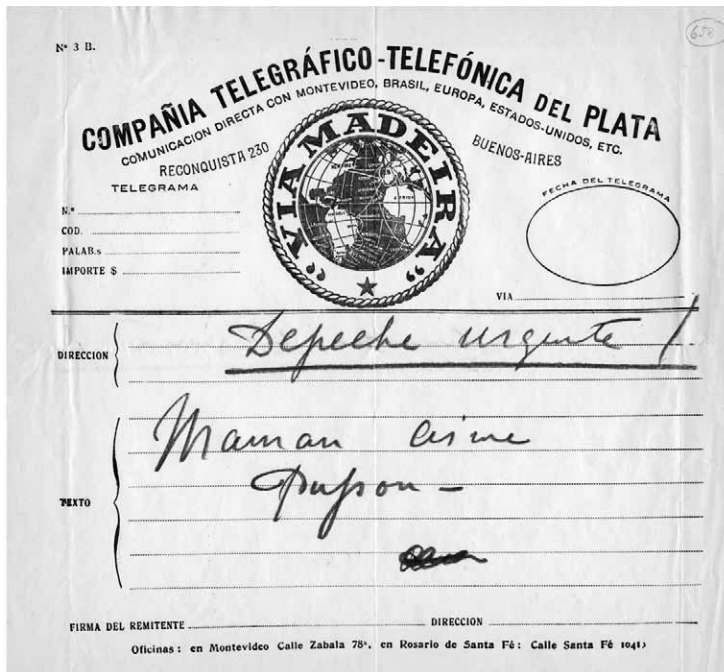 658
Nº 3 B.
COMPAÑIA TELEGRÁFICO-TELEFÓNICA DEL PLATA
COMUNICACION DIRECTA CON MONTEVIDEO, BRASIL, EUROPA, ESTADOS-UNIDOS, ETC.
RECONQUISTA 230
BUENOS-AIRES
TELEGRAMA
"VIA MADEIRA"
FECHA DEL TELEGRAMA
N.º
COD.
PALAB.s
IMPORTE $
VIA
DIRECCION
Depeche urgente
TEXTO
Maman aime
FIRMA DEL REMITENTE
DIRECCION
Oficinas: en Montevideo Calle Zabala 78ª, en Rosario de Santa Fé: Calle Santa Fé 1041